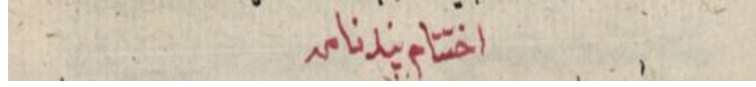 اختتام پندنامه